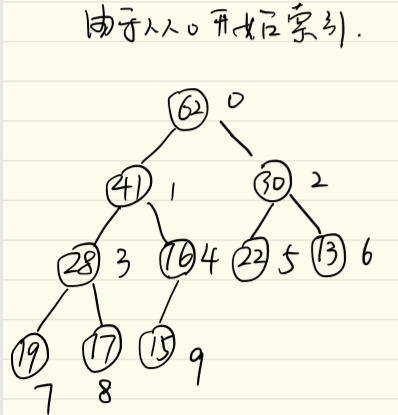 由于从0开始索引.
62 0
41 1 30 2
28 3 16 4 22 5 13 6
19 17 15 9
7 8